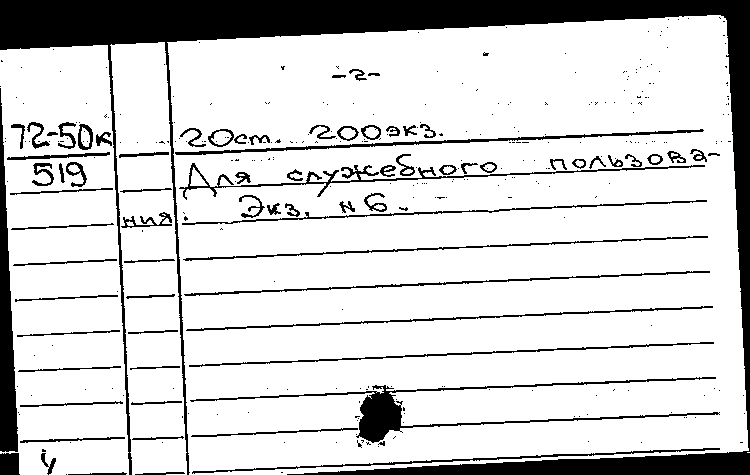 -2-
72-50к 20ст. 200экз.
519 Для служебного пользова-
ния. Экз. N6.